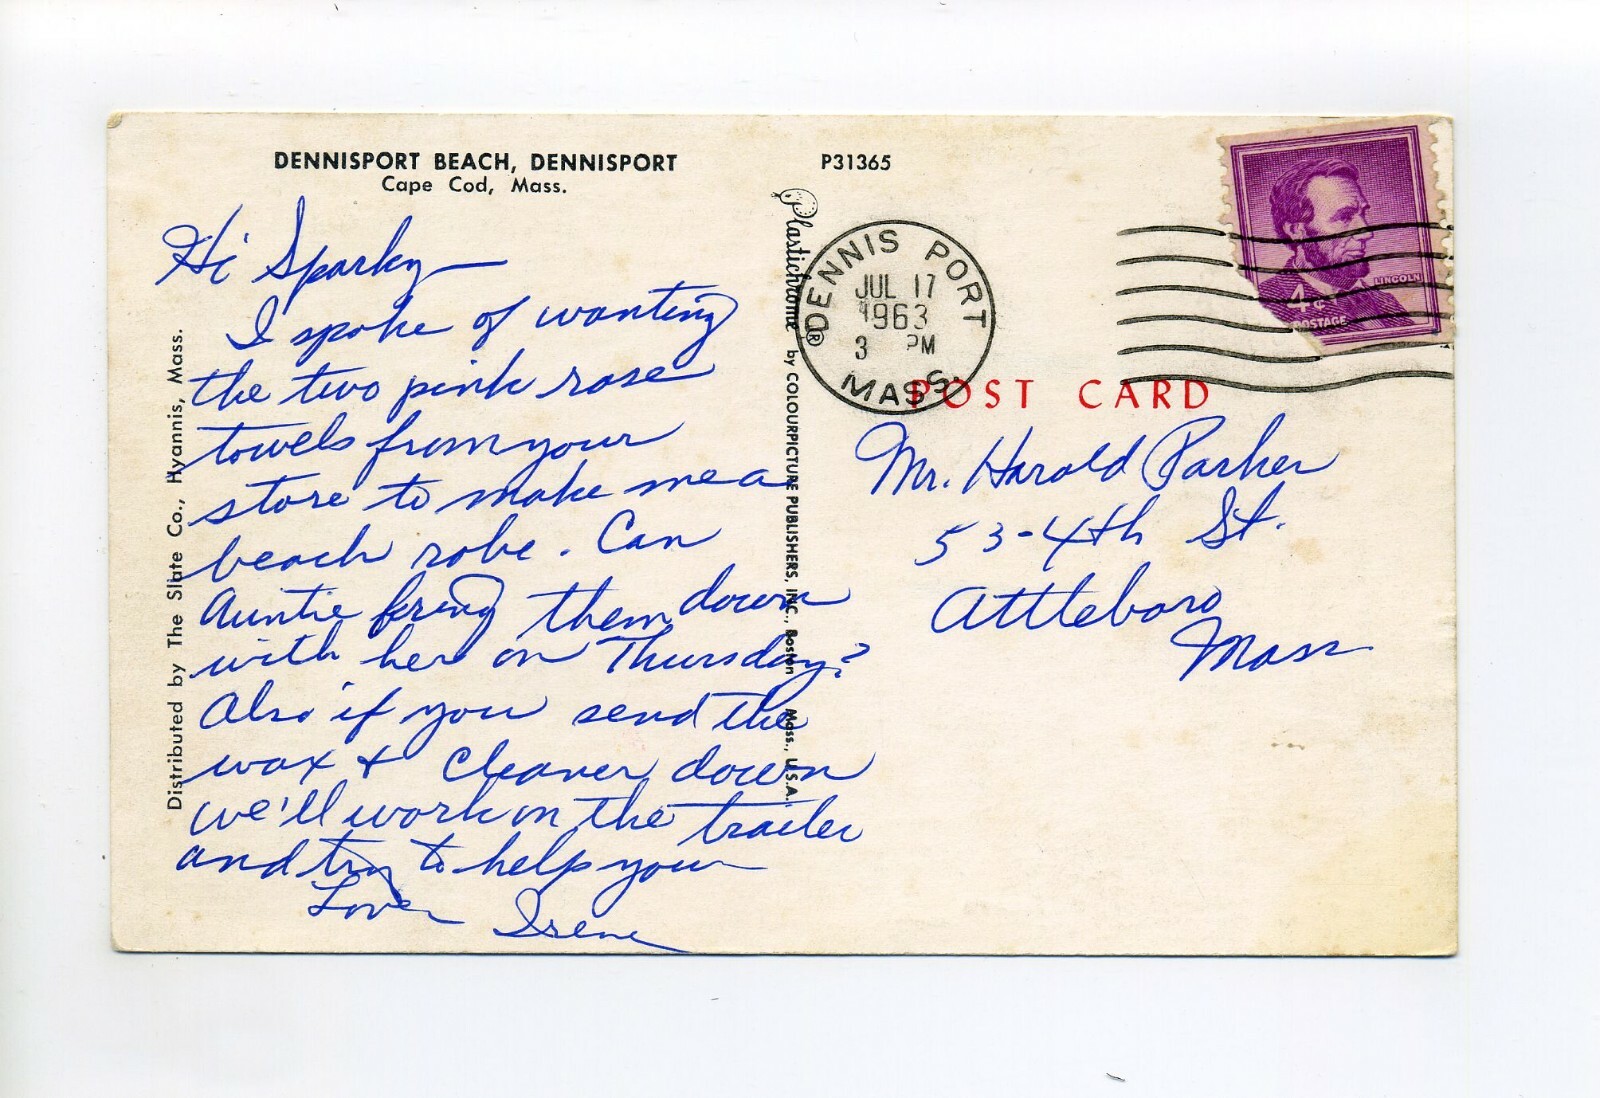 DENNISPORT BEACH, DENNISPORT
Cape Cod, Mass.
Hi Sparky—
I spoke of wanting
the two pink rose
towels from your
store to make me a
beach robe. Can
Auntie bring them down
with her on Thursday?
Also if you send the
wax + cleaner down
we'll work on the trailer
and try to help you
Love Irene
Distributed by The Slate Co., Hyannis, Mass.
Plastichrome ® by COLOURPICTURE PUBLISHERS, INC., Boston Mass., U.S.A.
P31365
DENNIS PORT
JUL 17
1963
3 PM
MASS.
LINCOLN
4¢
POSTAGE
POST CARD
Mr. Harold Parker
53-4th St.
Attleboro
Mass